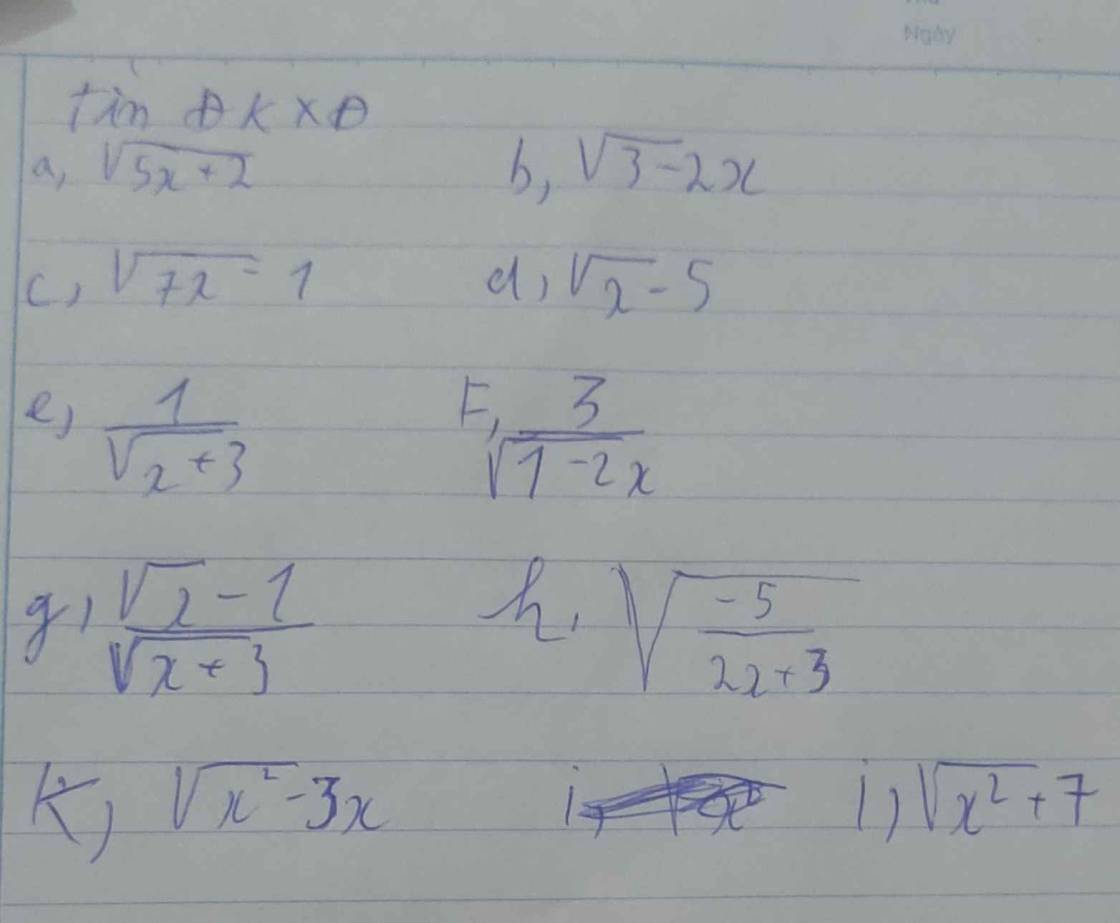 Ngày
tìm ĐKXĐ
a, √5x+2 b, √3-2x
c, √7x-1 d, √x-5
e, 1/√x+3 F, 3/√1-2x
g, √x-1/√x+3 h, √-5/2x+3
K, √x²-3x i, √x²+7